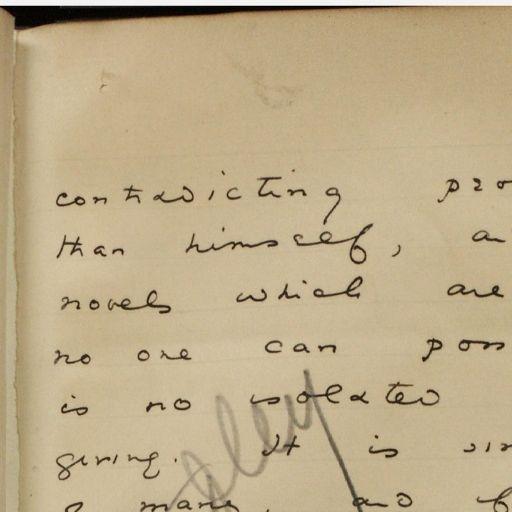 contradicting pro
than himself, an
novels which are
no one can poss
is no isolated
giving. It is sin
many, and